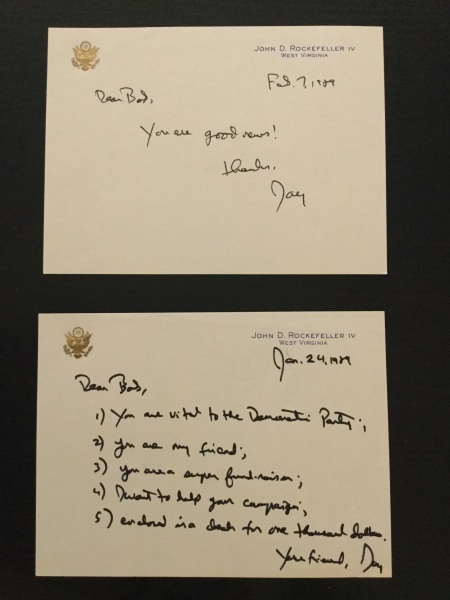 JOHN D. ROCKEFELLER IV
WEST VIRGINIA
Feb. 7, 1989
Dear Bob,
You are good news!
Thanks.
Jay
JOHN D. ROCKEFELLER IV
WEST VIRGINIA
Jan. 24, 1989
Dear Bob,
1) You are vital to the Democratic Party;
2) you are my friend;
3) you are a super fund-raiser;
4) I want to help your campaign;
5) enclosed is a check for one thousand dollars.
Your friend, Jay